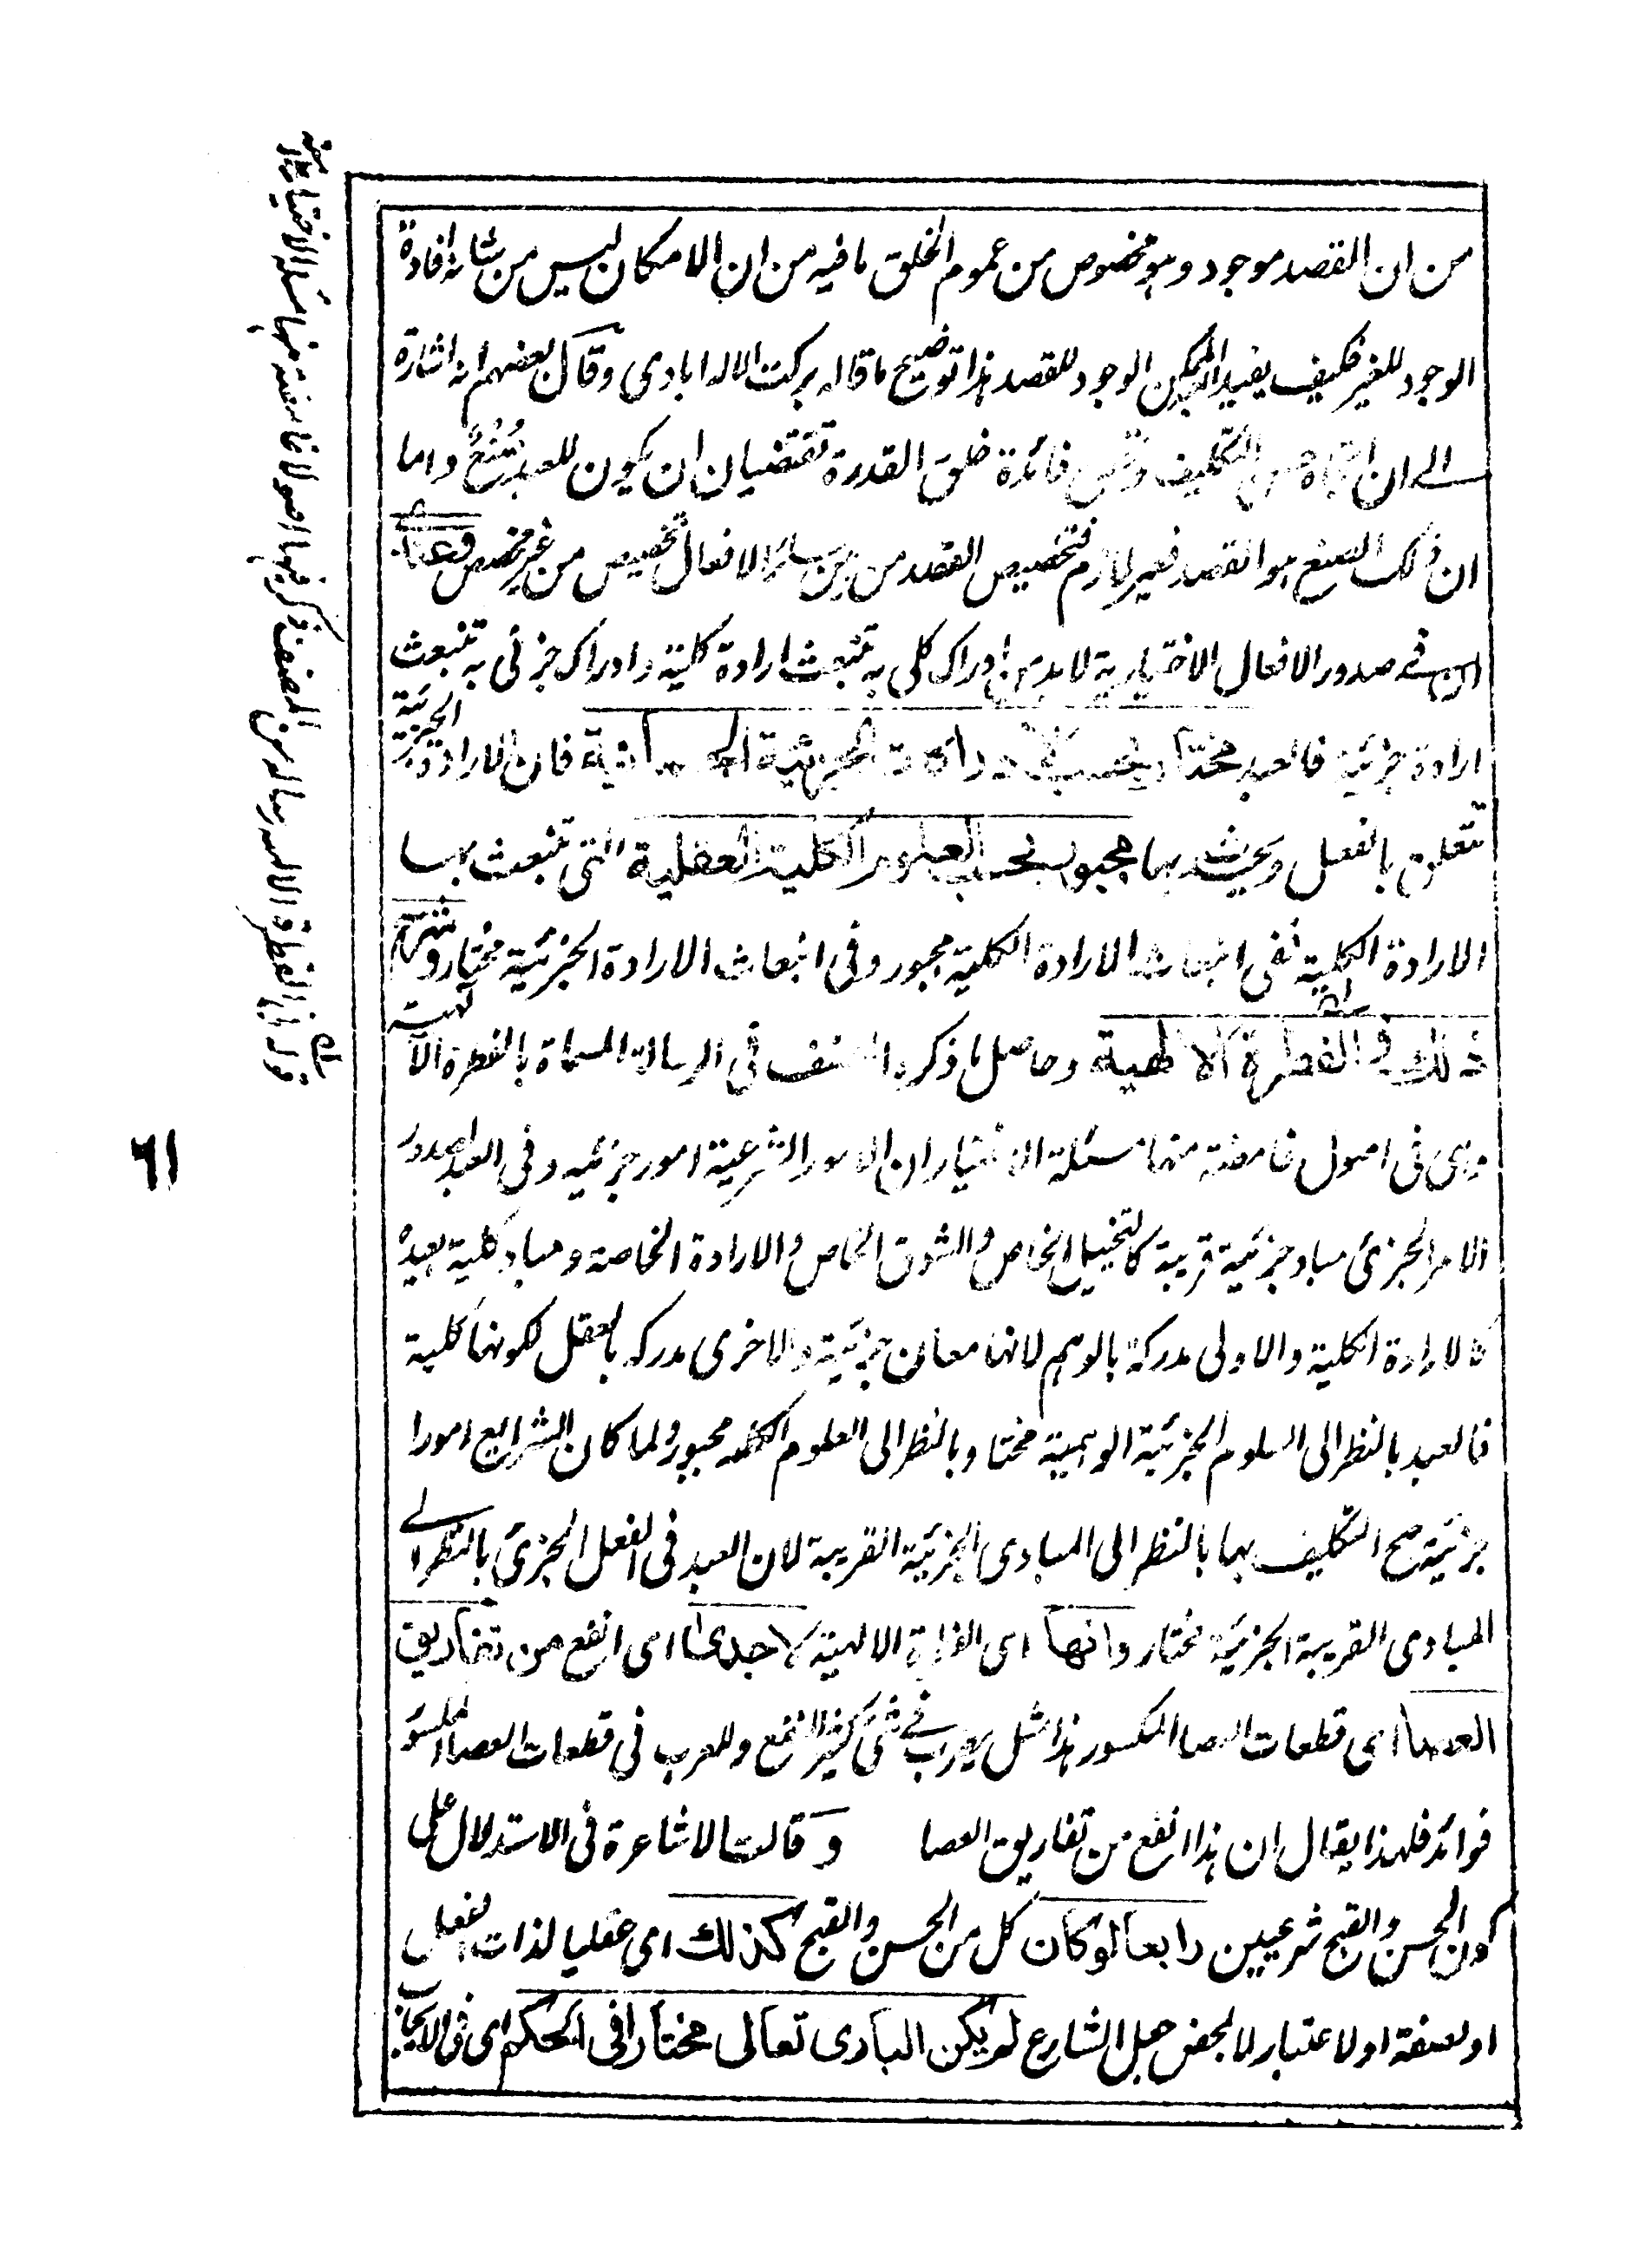 من ان القصد موجود وهو مخصوص من عموم الخلق ما فيه من ان الامكان ليس من شانه افادة
الوجود للغير فكيف يفيد الممكن الوجود للقصد هذا توضيح ما قاله بركت الاله ابادى وقال بعضهم انه اشارة
الى ان التكليف فائدة خلق القدرة تقتضيان ان يكون للعبد صُنعٌ واما
ان ذلك الصنع هو القصد فغير لازم فتخصيص القصد من بين سائر الافعال تخصيص من غير مخصص وعندى
ان فى صدور الافعال الاختيارية لابد من ادراك كلى به تنبعث ارادة كلية وادراك جزئى به تنبعث
ارادة جزئية فالعبد مختار بحسب الادراكات الجزئية الجسمانية فان الارادة الجزئية
تتعلق بالفعل ويحدث بها مجبور بحسب العلوم الكلية العقلية التى تنبعث بها
الارادة الكلية ففى انبعاث الارادة الكلية مجبور وفى انبعاث الارادة الجزئية مختار وشرح
ذلك فى الفطرة الالهية وحاصل ما ذكره المصنف فى الرسالة المسماة بالفطرة الالهية
وهى فى اصول غامضة منها مسئلة الاختيار ان الامور الشرعية امور جزئية وفى العبد لصدور
الامر الجزئى مباد جزئية قريبة كالتخيل الخاص والشوق الخاص والارادة الخاصة ومباد كلية بعيدة
كالارادة الكلية والاولى مدركة بالوهم لانها معان جزئية والاخرى مدركه بالعقل لكونها كلية
فالعبد بالنظر الى العلوم الجزئية الوهمية مختار وبالنظر الى العلوم الكلية مجبور ولما كان الشرايع امورا
جزئية صح التكليف بها بالنظر الى المبادى الجزئية القريبة لان العبد فى الفعل الجزئى بالنظر الى
المبادى القريبة الجزئية مختار وانها اى الفطرة الالهية لاجدى اى انفع من تفاريق
العصا اى قطعات العصا المكسور هذا مثل يضرب فى شئ كثير النفع وللعرب فى قطعات العصا المكسور
فوائد فلهذا يقال ان هذا انفع من تفاريق العصا وقالت الاشاعرة فى الاستدلال على
كون الحسن والقبح شرعيين رابعا لو كان كل من الحسن والقبح كذلك اى عقليا لذات الفعل
او لصفة او لاعتبار لا لمحض جعل الشارع لم يكن البارى تعالى مختارا فى الحكم اى فى الايجاب
قوله فى الفطرة الالهية رسالة من المصنف ذكر فيها اصولا غامضة منها مسئلة الاختيار منه
٦١